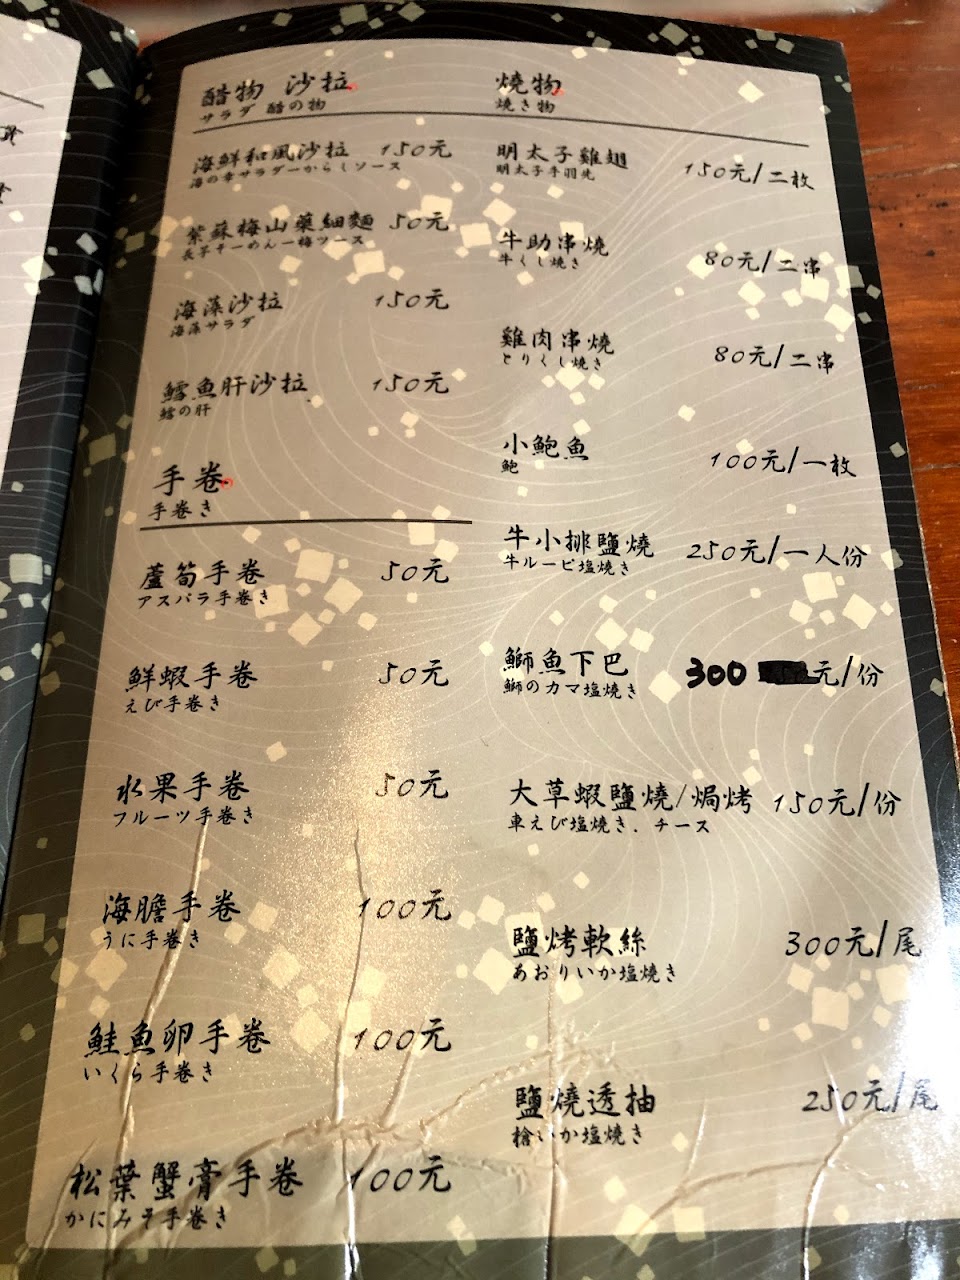 醋物 沙拉
サラダ 醋の物
海鮮和風沙拉 150元
海の幸サラダーからしソース
紫蘇梅山藥細麵 50元
長芋そーめんー梅ソース
海藻沙拉 150元
海藻サラダ
鱈魚肝沙拉 150元
鱈の肝
手卷
手巻き
蘆筍手卷 50元
アスパラ手巻き
鮮蝦手卷 50元
えび手巻き
水果手卷 50元
フルーツ手巻き
海膽手卷 100元
うに手巻き
鮭魚卵手卷 100元
いくら手巻き
松葉蟹膏手卷 100元
かにみそ手巻き
燒物
焼き物
明太子雞翅 150元/二枚
明太子手羽先
牛助串燒 80元/二串
牛くし焼き
雞肉串燒 80元/二串
とりくし焼き
小鮑魚 100元/一枚
鮑
牛小排鹽燒 250元/一人份
牛ルービ塩焼き
鰤魚下巴 300 元/份
鰤のカマ塩焼き
大草蝦鹽燒/焗烤 150元/份
車えび塩焼き．チース
鹽烤軟絲 300元/尾
あおりいか塩焼き
鹽燒透抽 250元/尾
槍いか塩焼き